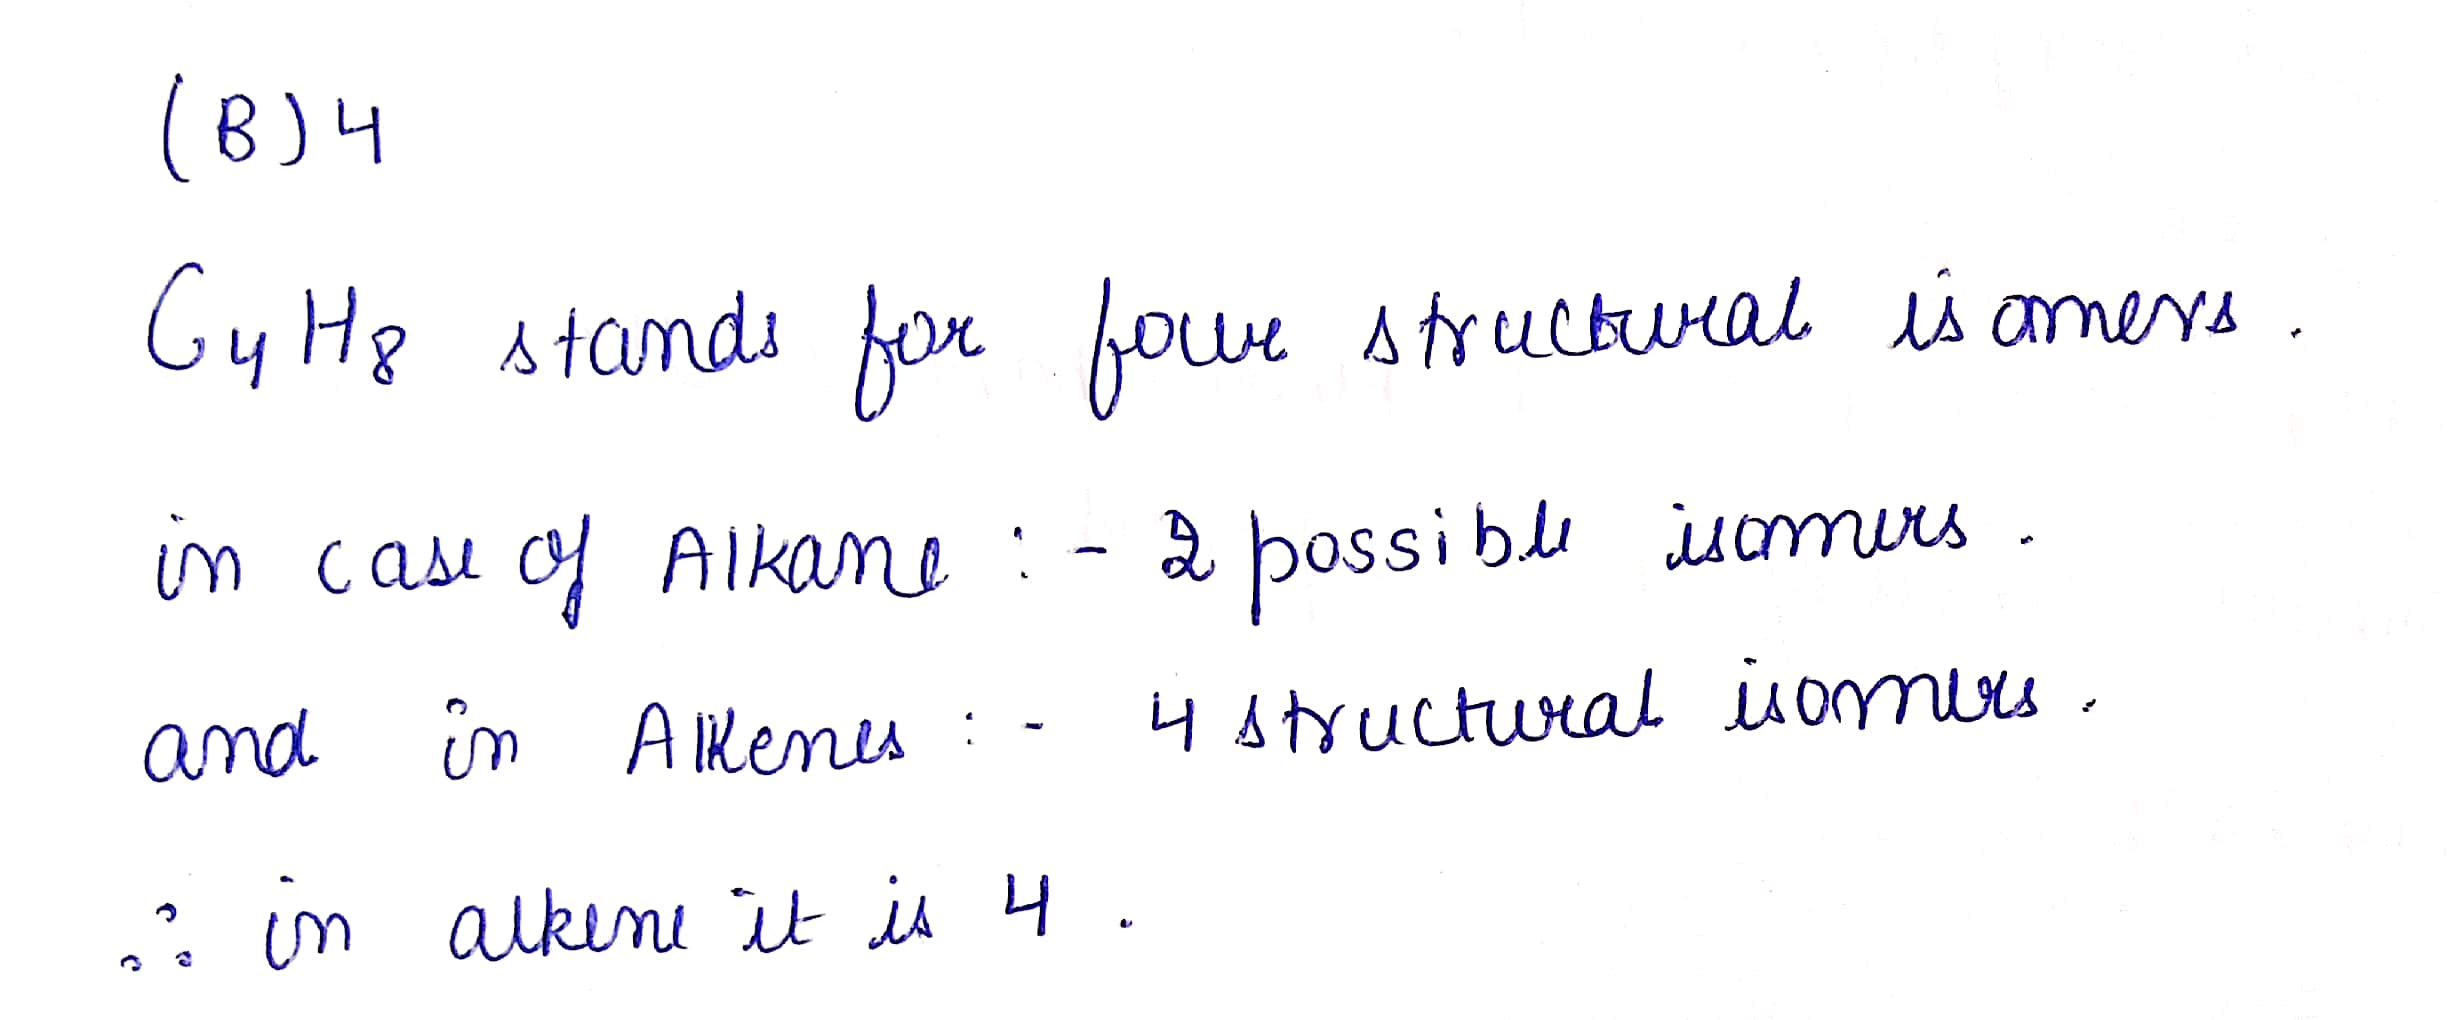 (B) 4
C4H8 stands for four structural isomers.
in case of Alkane :- 2 possible isomers.
and in Alkenes :- 4 structural isomers.
∴ in alkene it is 4.